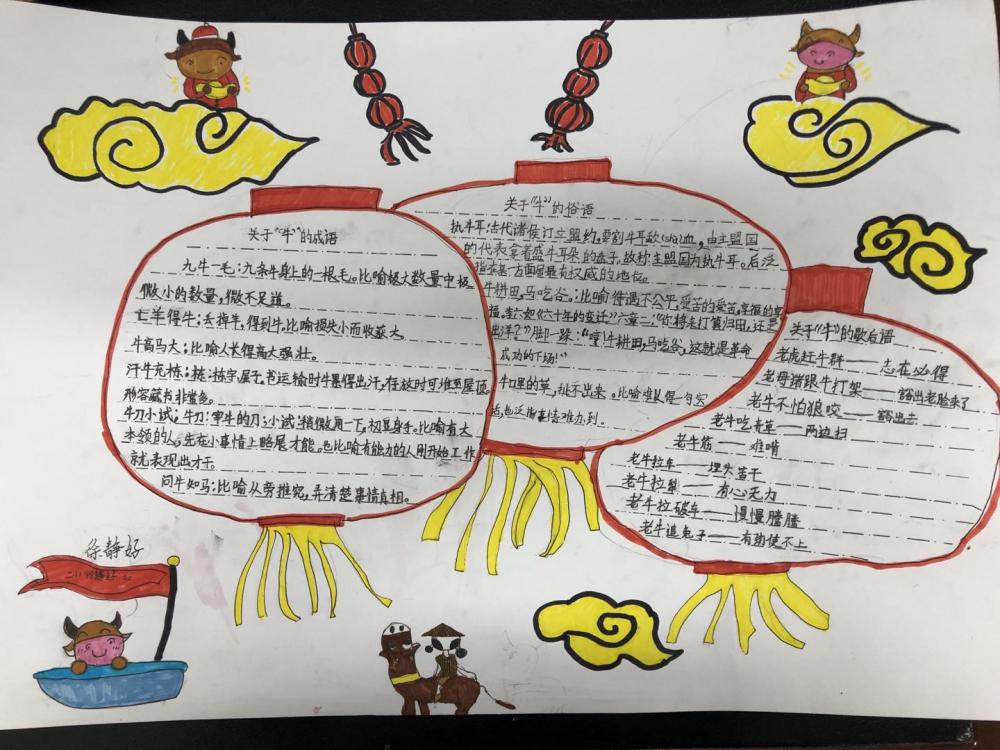 关于"牛"的成语
九牛一毛:九条牛身上的一根毛。比喻极大数量中极
微小的数量,微不足道。
亡羊得牛:丢掉羊,得到牛。比喻损失小而收获大。
牛高马大:比喻人长得高大强壮。
汗牛充栋:栋:栋宇屋子,书运输时牛累得出汗,存放时可堆至屋顶。
形容藏书非常多。
牛刀小试:牛刀:宰牛的刀;小试:稍微用一下,初显身手。比喻有大
本领的人,先在小事情上略展才能。也比喻有能力的人刚开始工作
就表现出才干。
问牛知马:比喻从旁推究,弄清楚事情真相。
关于"牛"的俗语
执牛耳:古代诸侯订立盟约,要割牛耳歃(shà)血,由主盟国
的代表拿着盛牛耳朵的盘子,故称主盟国为执牛耳。后泛
指在某一方面居最有权威的地位。
牛耕田,马吃谷。:比喻待遇不公平,受苦的受苦,享福的享
福。李六如《六十年的变迁》六章二:"你将来打算归田,还是
出洋?"脚一跺:"哼!牛耕田,马吃谷,这就是革命
成功的下场!"
牛口里的草,扯不出来。比喻难以得
话,也泛指事情难办到。
关于"牛"的歇后语
老虎赶牛群——志在必得
老母猪跟牛打架——豁出老脸来了
老牛不怕狼咬——豁出去
老牛吃青草——两边扫
老牛筋——难啃
老牛拉车——埋头苦干
老牛拉犁——有心无力
老牛拉破车——慢慢腾腾
老牛追兔子——有劲使不上
徐静好